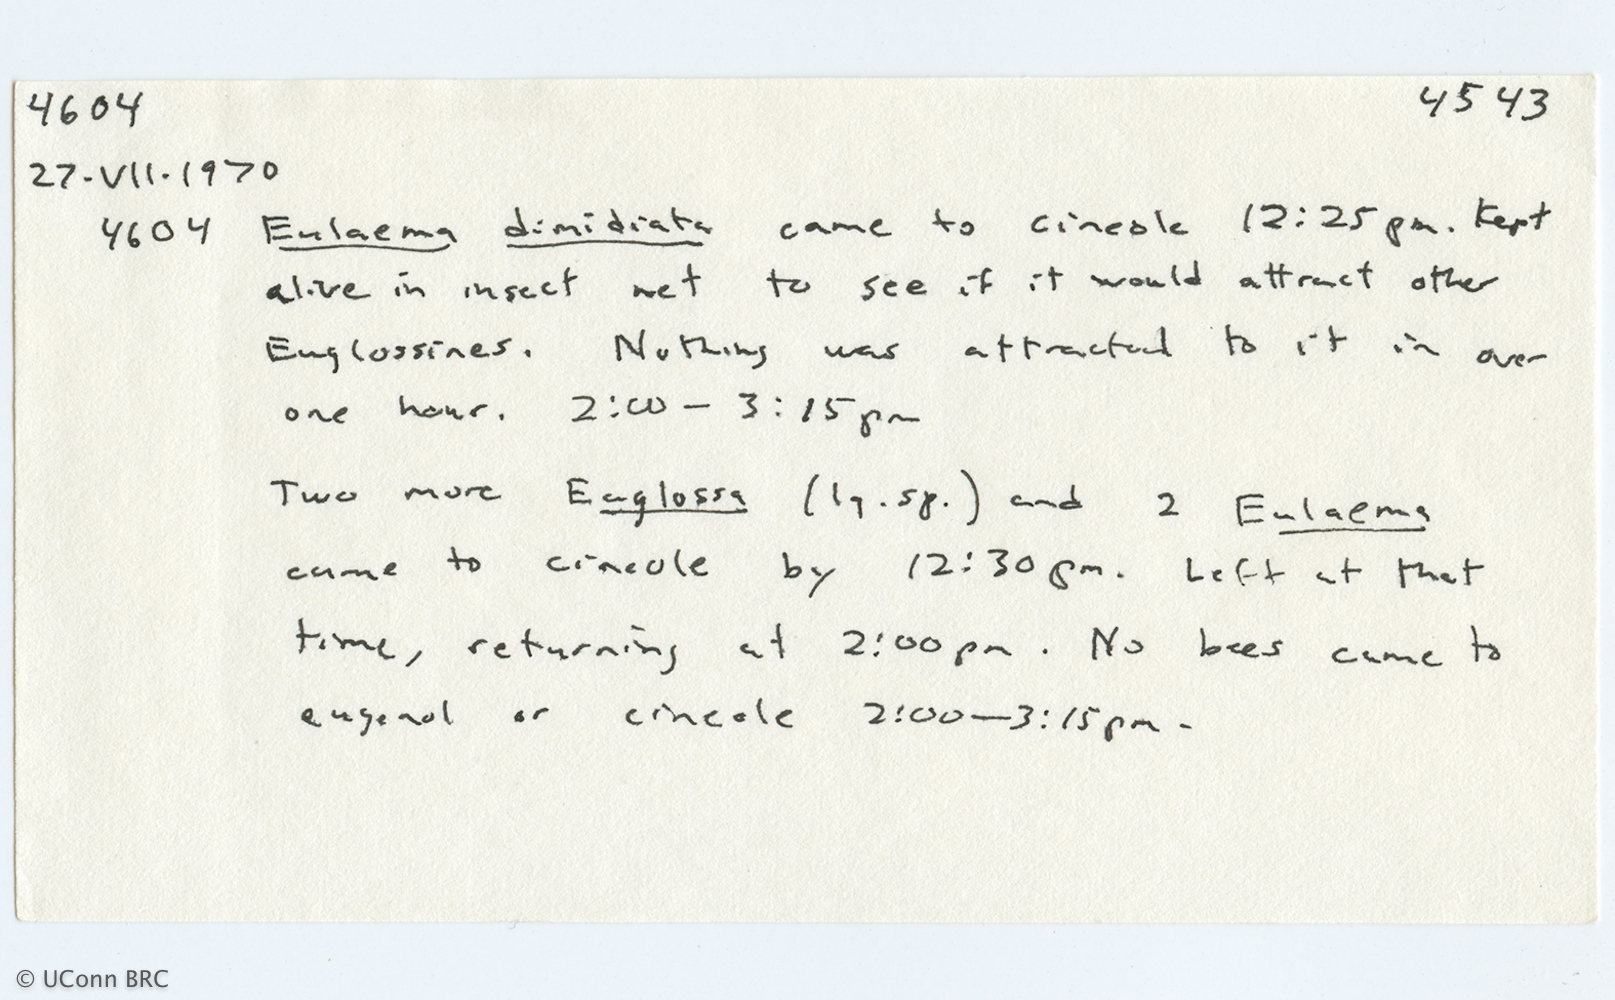 4604 4543
27-VII-1970
4604 Eulaema dimidiata came to cineole 12:25 pm. Kept
alive in insect net to see if it would attract other
Euglossines. Nothing was attracted to it in over
one hour. 2:00 - 3:15 pm
Two more Euglossa (lg. sp.) and 2 Eulaema
came to cineole by 12:30 pm. Left at that
time, returning at 2:00 pm. No bees came to
eugenol or cineole 2:00-3:15 pm.
© UConn BRC